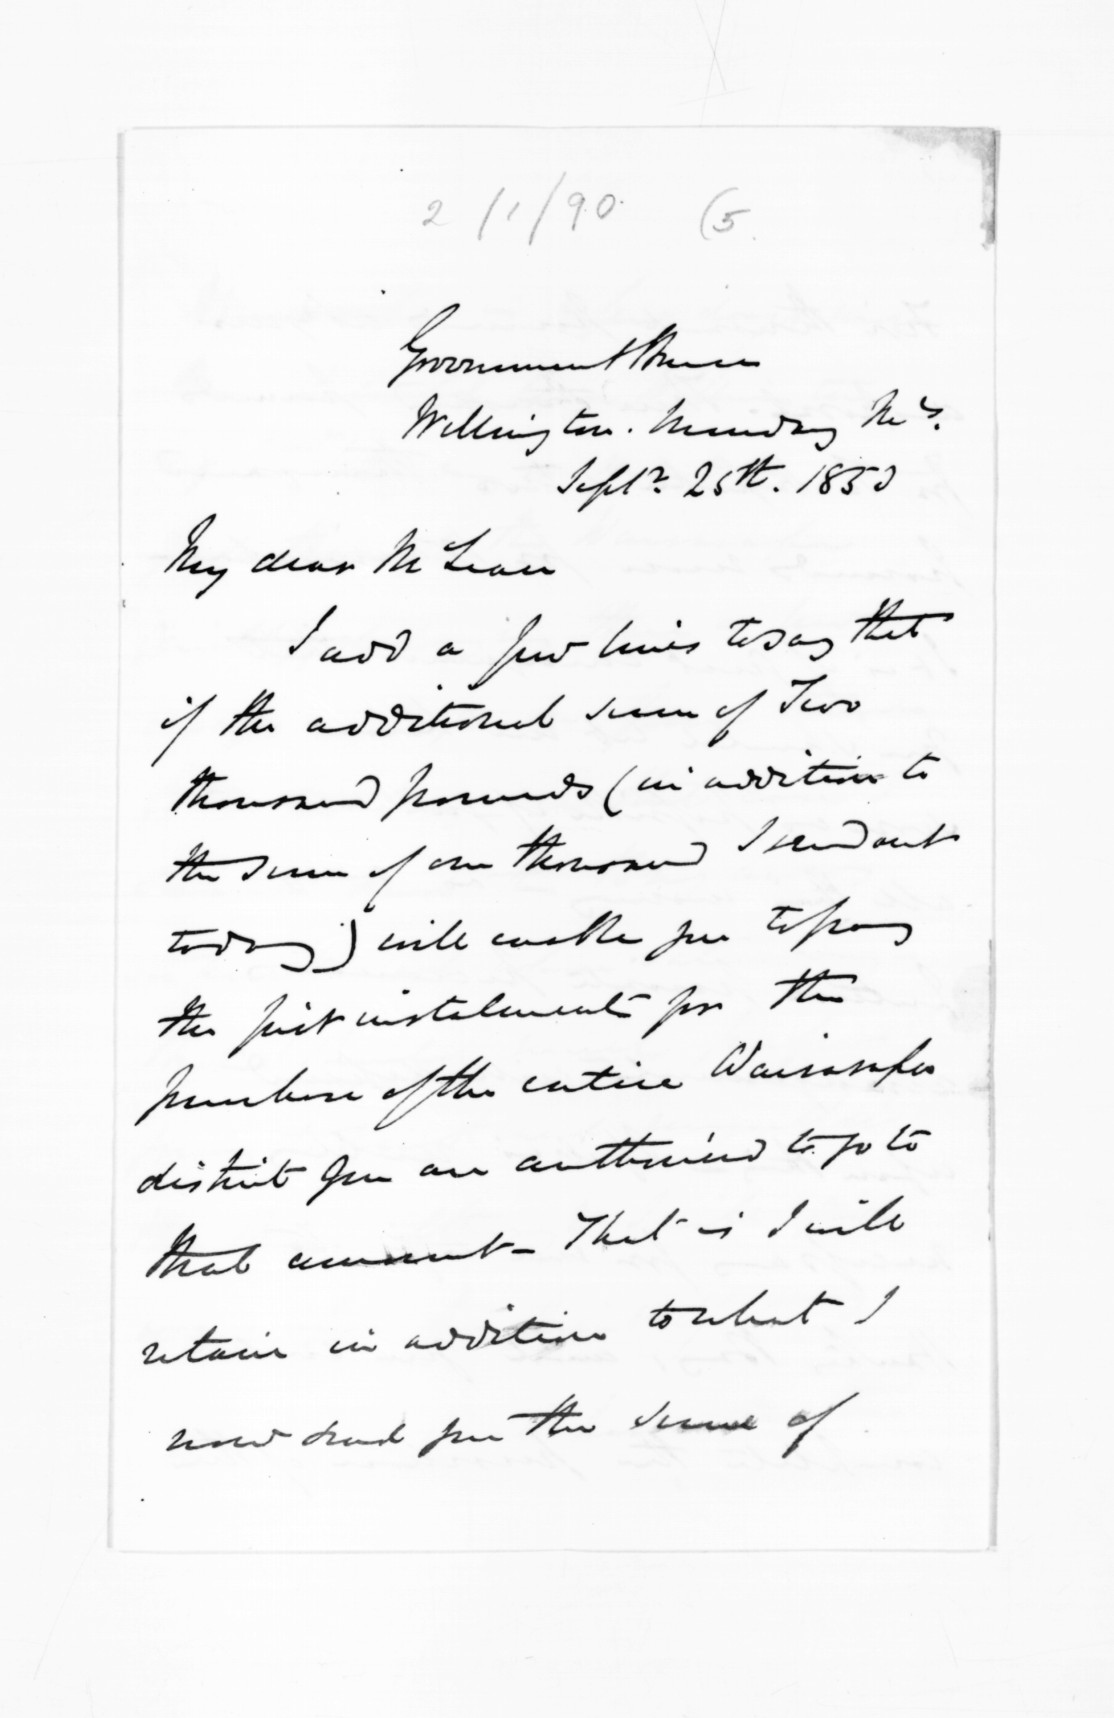 2/1/90 (5
Government House
Wellington. Monday
Septr. 25th. 1853
My dear McLean
I add a few lines to say that
if the additional sum of Two
thousand pounds (in addition to
the sum of one thousand I send out
today) will enable you to pay
the first instalment for the
purchase of the entire Wairarapa
district you are authorised to go to
that amount - That is I will
retain in addition to what I
now send you the sum of